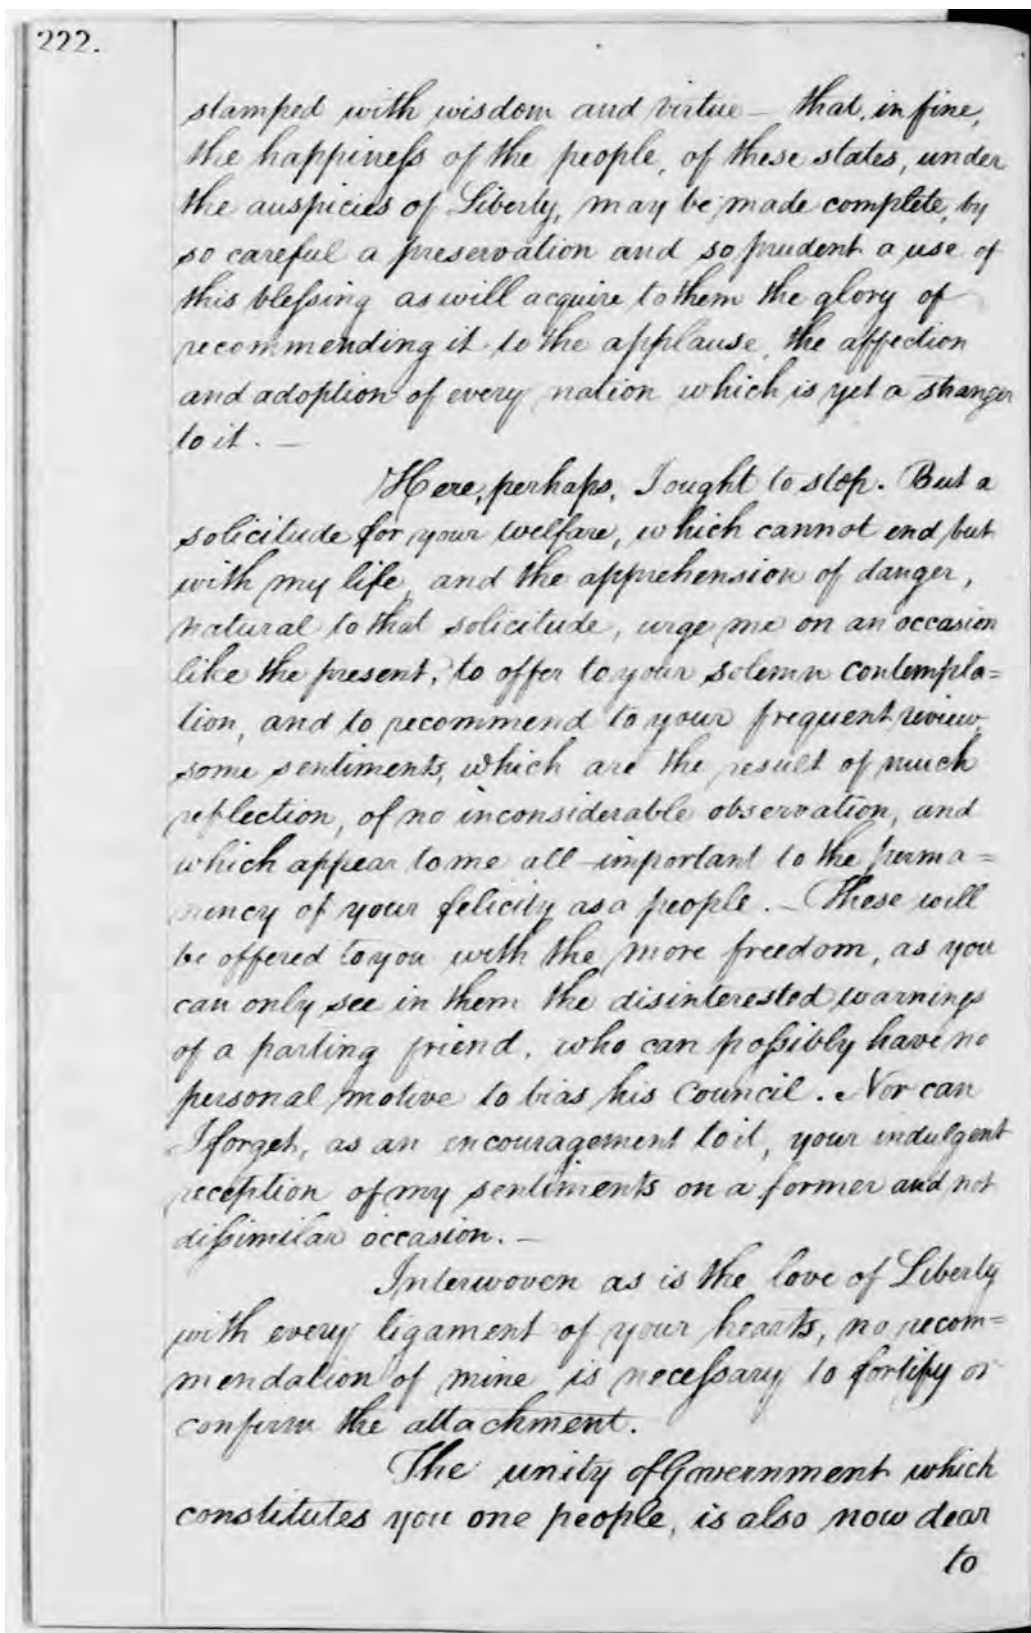 222.
stamped with wisdom and virtue – that, in fine,
the happineſs of the people, of these states, under
the auspicies of Liberty, may be made complete, by
so careful a preservation and so prudent a use of
this bleſsing as will acquire to them the glory of
recommending it to the applause, the affection
and adoption of every nation which is yet a stranger
to it. –
Here, perhaps, I ought to stop. But a
solicitude for your welfare, which cannot end but
with my life, and the apprehension of danger,
natural to that solicitude, urge me on an occasion
like the present, to offer to your solemn contempla=
tion, and to recommend to your frequent review,
some sentiments, which are the result of much
reflection, of no inconsiderable observation, and
which appear to me all-important to the perma=
nency of your felicity as a people. – These will
be offered to you with the more freedom, as you
can only see in them the disinterested warnings
of a parting friend, who can poſsibly have no
personal motive to bias his Council. Nor can
I forget, as an encouragement to it, your indulgent
reception of my sentiments on a former and not
diſsimilar occasion. –
Interwoven as is the love of Liberty
with every ligament of your hearts, no recom=
mendation of mine is neceſsary to fortify or
confirm the attachment.
The unity of Government which
constitutes you one people, is also now dear
to